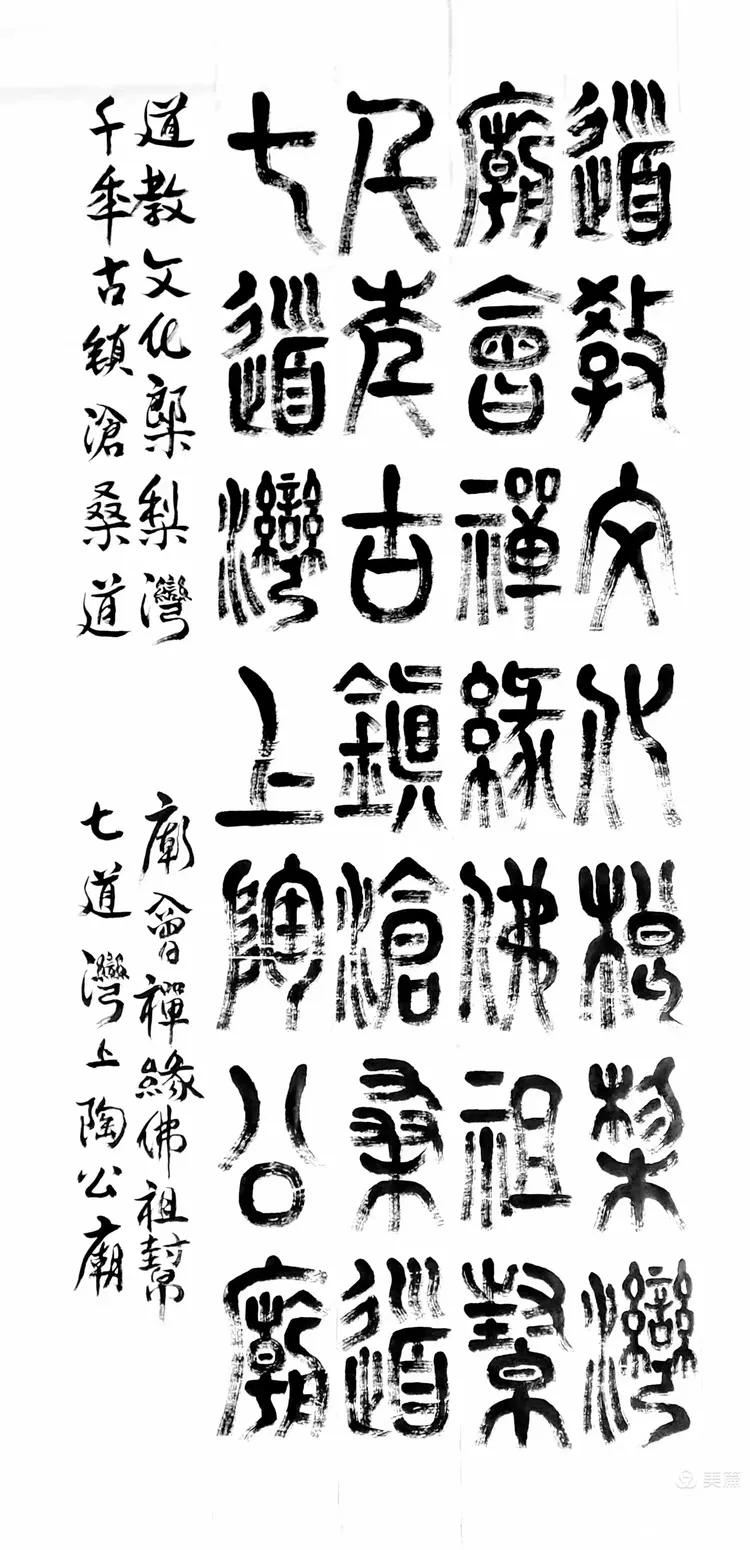 道教文化桹梨灣
廟會禪緣佛祖幫
千年古鎮滄桑道
七道灣上陶公廟
道教文化㮾梨灣 廟會禪緣佛祖幫
千年古鎮滄桑道 七道灣上陶公廟
美篇